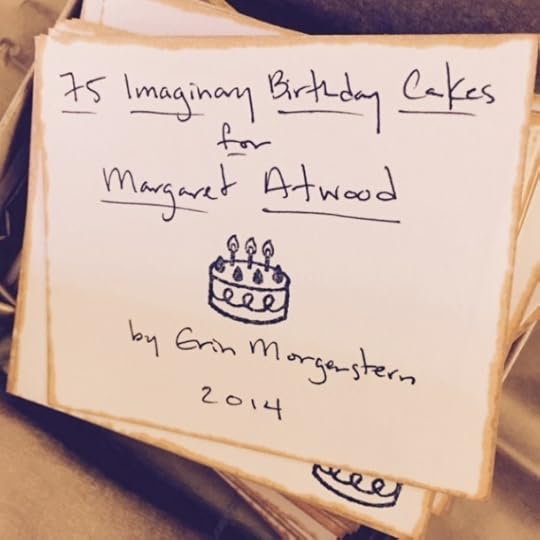 75 Imaginary Birthday Cakes
for
Margaret Atwood
by Erin Morgenstern
2014